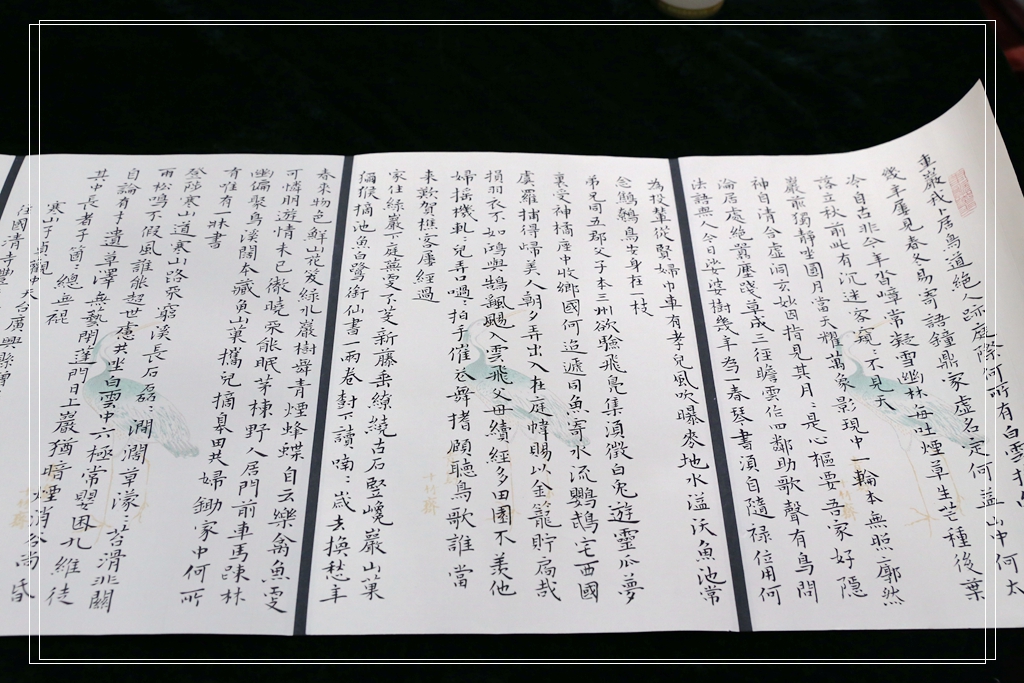 重巖我卜居鳥道絕人跡庭際何所有白雲抱
幾年屢見春冬易寄語鐘鼎家虛名定何益山中何太
冷自古非今年沓嶂常凝雪幽林每吐煙草生芒種後葉
落立秋前此有沉迷客窺〻不見天
巖前獨靜坐圓月當天耀萬象影現中一輪本無照廓然
神自清含虛洞玄妙因指見其月〻是心樞要吾家好隱
淪居處絕囂塵踐草成三徑瞻雲作四鄰助歌聲有鳥問
法語無人今日娑婆樹幾年為一春琴書須自隨祿位用何
為投輦從賢婦巾車有孝兒風吹曝麥地水溢沃魚池常
念鷦鷯鳥安身在一枝
弟兄同五郡父子本三州欲驗飛鳧集須徵白兔遊靈瓜夢
裏受神橘座中收鄉國何迢遞同魚寄水流鸚鵡宅西國
虞羅捕得歸美人朝夕弄出入在庭幃賜以金籠貯扃哉
損羽衣不如鴻與鶴飄颺入雲飛父母續經多田園不羨他
婦搖機軋〻兒弄口喎〻拍手催花舞搘頤聽鳥歌誰當
來歎賀樵客屢經過
家住綠巖下庭蕪更不芟新藤垂繚繞古石豎巉巖山菓
獼猴摘池魚白鷺銜仙書一兩卷樹下讀喃〻歲去換愁年
春來物色鮮山花笑綠水巖樹舞青煙蜂蝶自云樂禽魚更
可憐朋遊情未已徹曉不能眠茅棟野人居門前車馬疎林
幽偏聚鳥溪闊本藏魚山菓攜兒摘皋田共婦鋤家中何所
有唯有一牀書
登陟寒山道寒山路不窮溪長石磊〻澗闊草濛〻苔滑非關
雨松鳴不假風誰能超世慮共坐白雲中六極常嬰困九維徒
自論有才遺草澤無藝閉蓬門日上巖猶暗煙消谷尚昏
其中長者子箇〻總無裩
寒山子貞觀中天台廣興縣僧
住國清寺豐